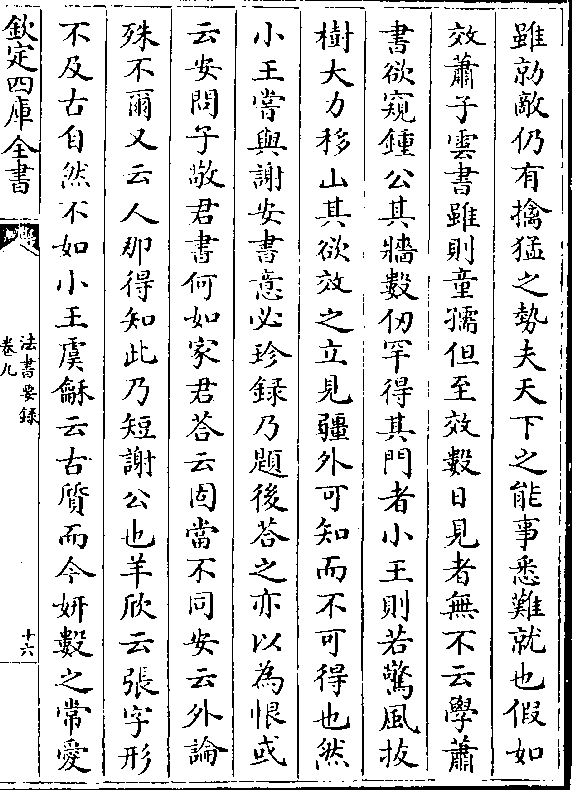 雖勍敵仍有擒猛之勢夫天下之能事悉難就也假如
效蕭子雲書雖則童孺但至效數日見者無不云學蕭
書欲窺鍾公其牆數仞罕得其門者小王則若驚風拔
樹大力移山其欲效之立見疆外可知而不可得也然
小王嘗與謝安書意必珍録乃題後答之亦以為恨或
云安問子敬君書何如家君答云固當不同安云外論
殊不爾又云人那得知此乃短謝公也羊欣云張字形
不及古自然不如小王虞龢云古質而今妍數之常愛
欽定四庫全書
法書要録
卷九
十六